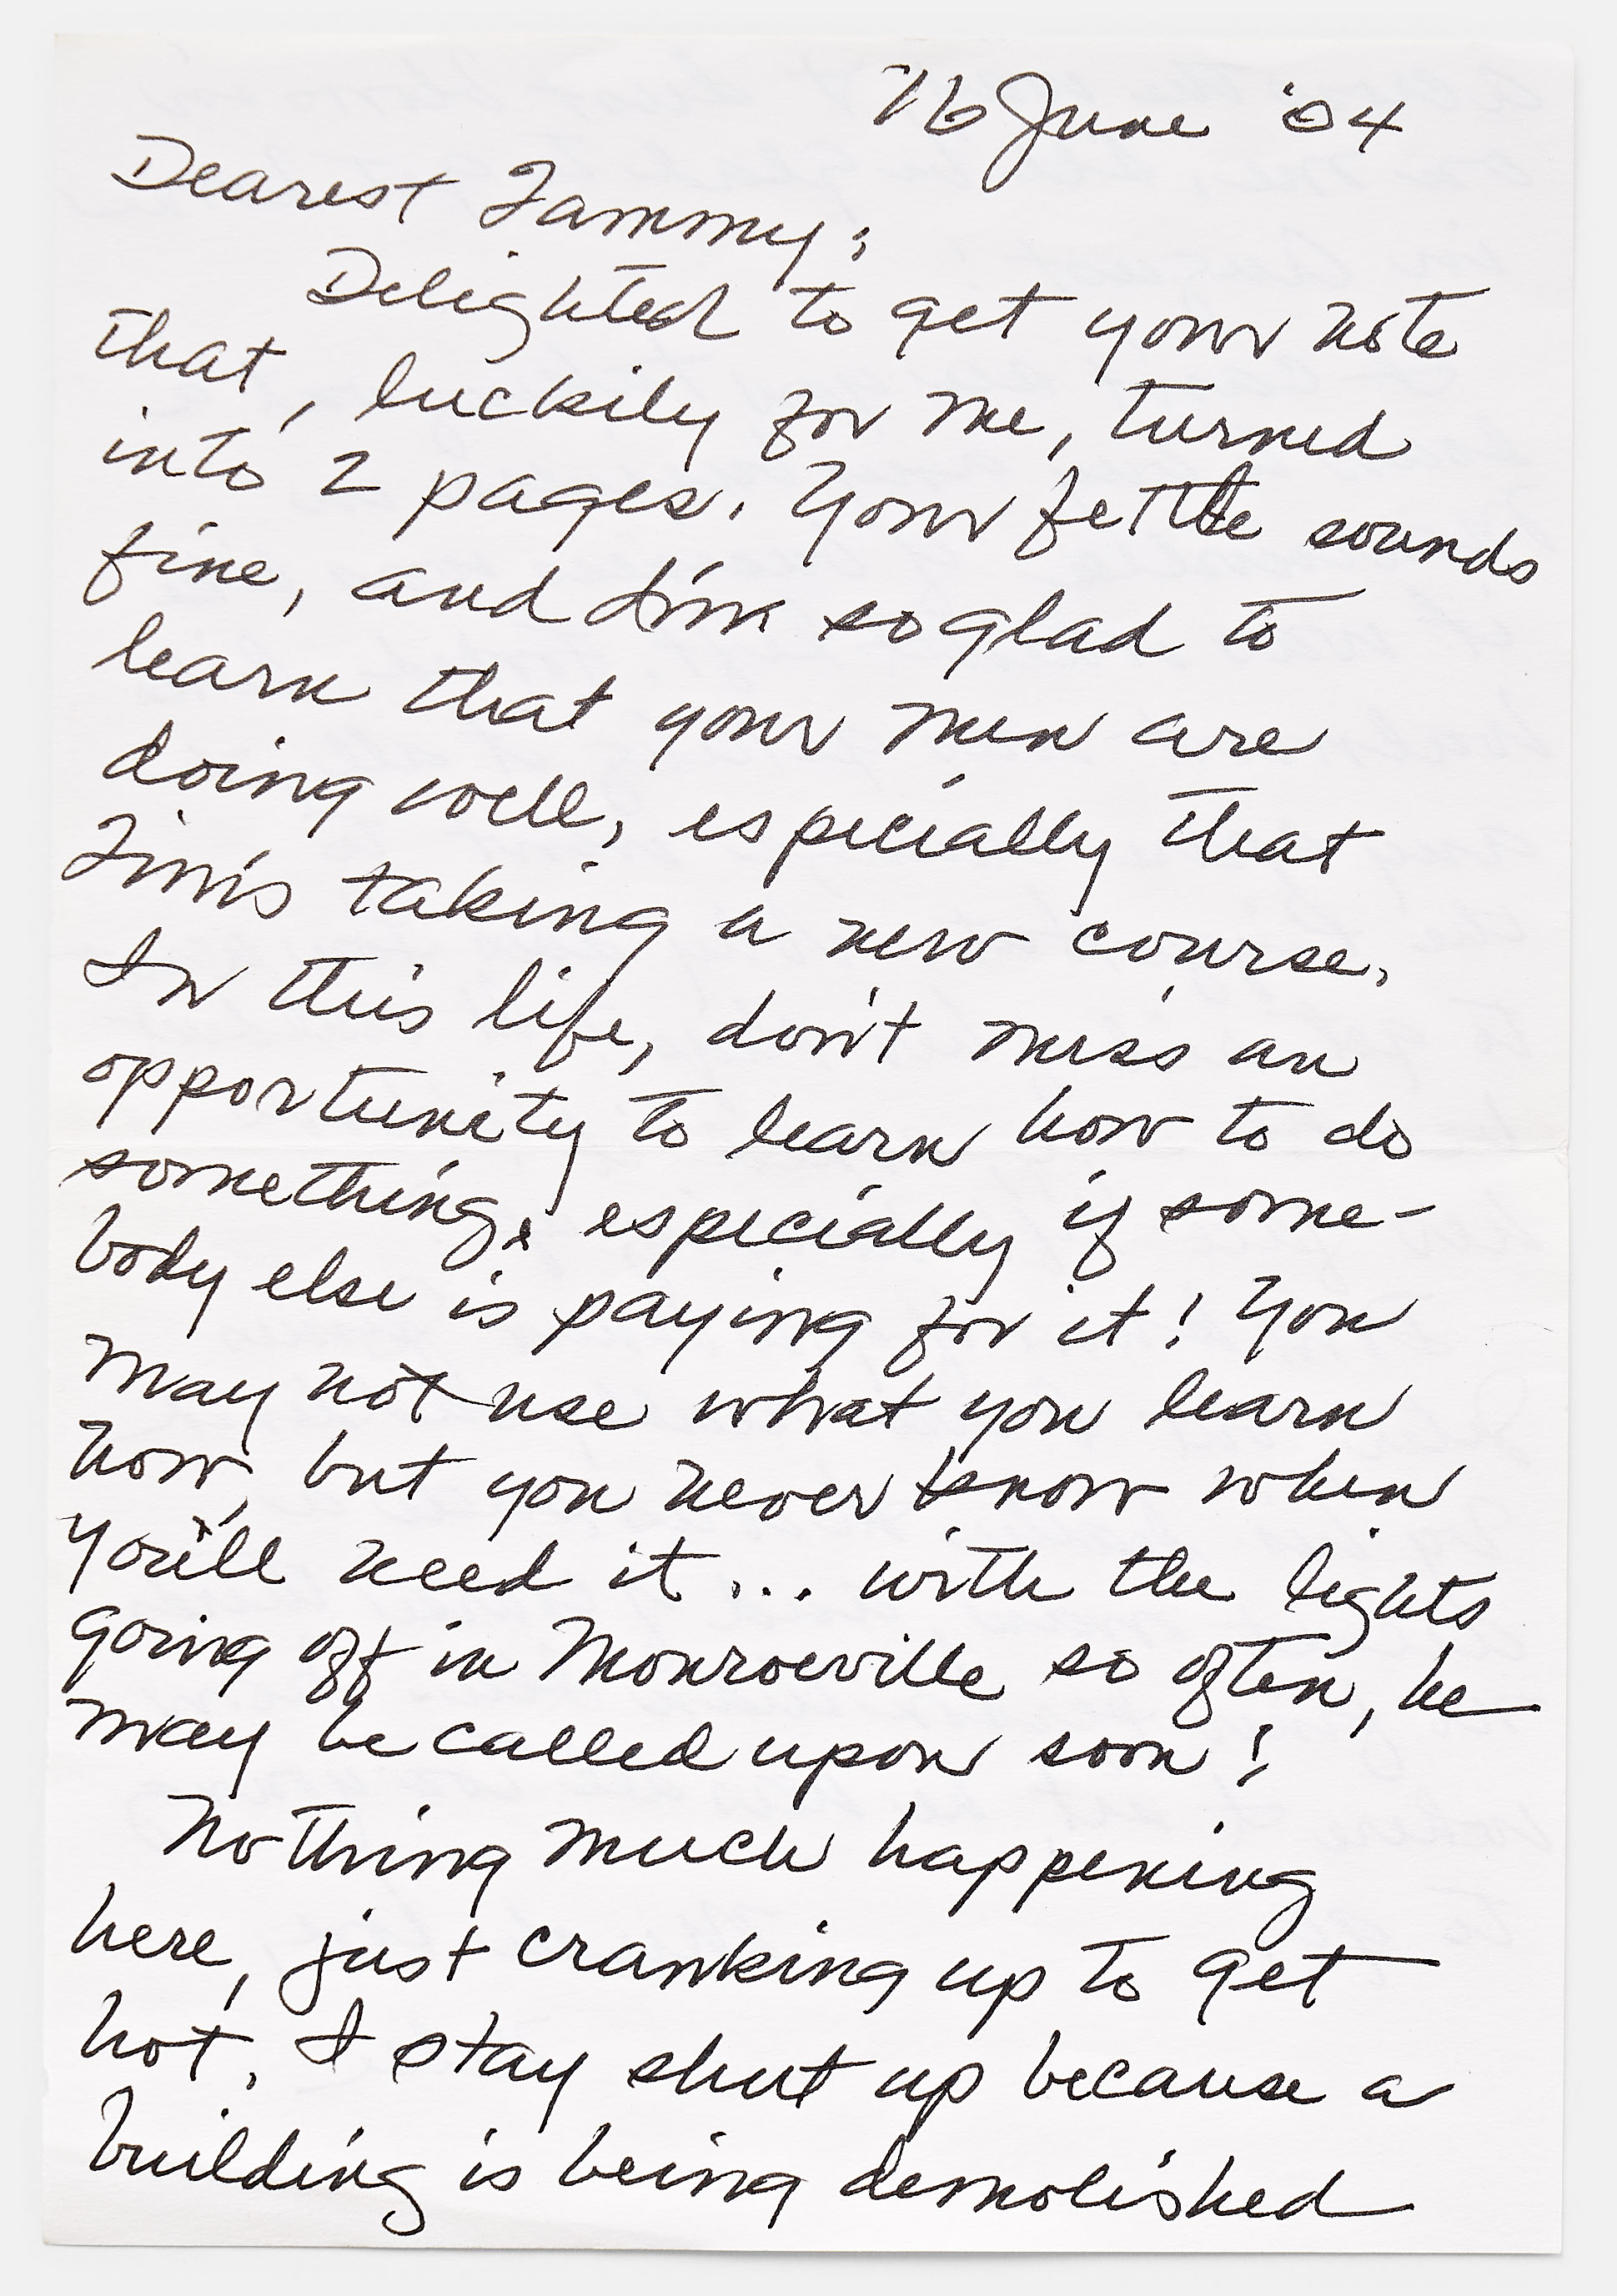 16 June '04
Dearest Tammy:
Delighted to get your note
that, luckily for me, turned
into 2 pages. Your fettle sounds
fine, and I'm so glad to
learn that your men are
doing well, especially that
Tim's taking a new course.
In this life, don't miss an
opportunity to learn how to do
something, especially if some-
body else is paying for it! You
may not use what you learn
now, but you never know when
you'll need it ... with the lights
going off in Monroeville so often, he
may be called upon soon!
Nothing much happening
here, just cranking up to get
hot. I stay shut up because a
building is being demolished